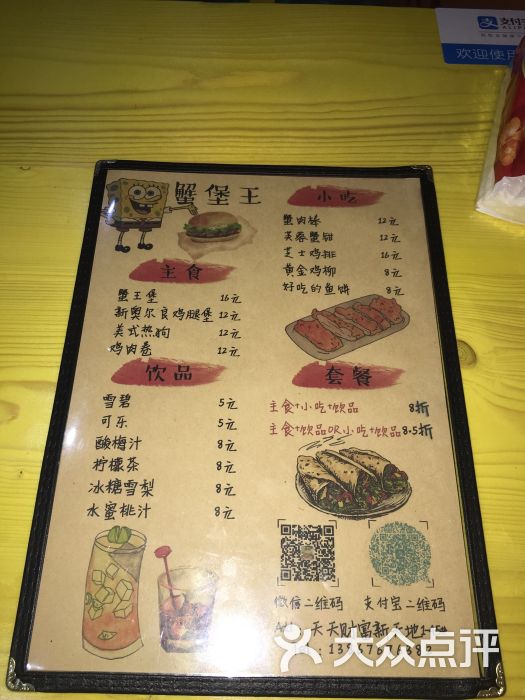 支付
ALIP
欢迎使用
蟹堡王
主食
蟹王堡 16元
新奥尔良鸡腿堡 12元
美式热狗 12元
鸡肉卷 12元
饮品
雪碧 5元
可乐 5元
酸梅汁 8元
柠檬茶 8元
冰糖雪梨 8元
水蜜桃汁 8元
小吃
蟹肉棒 12元
芙蓉蟹钳 12元
芝士鸡排 16元
黄金鸡柳 8元
好吃的鱼饼 8元
套餐
主食+小吃+饮品 8折
主食+饮品OR小吃+饮品 8.5折
微信二维码 支付宝二维码
天天财富新天地
大众点评